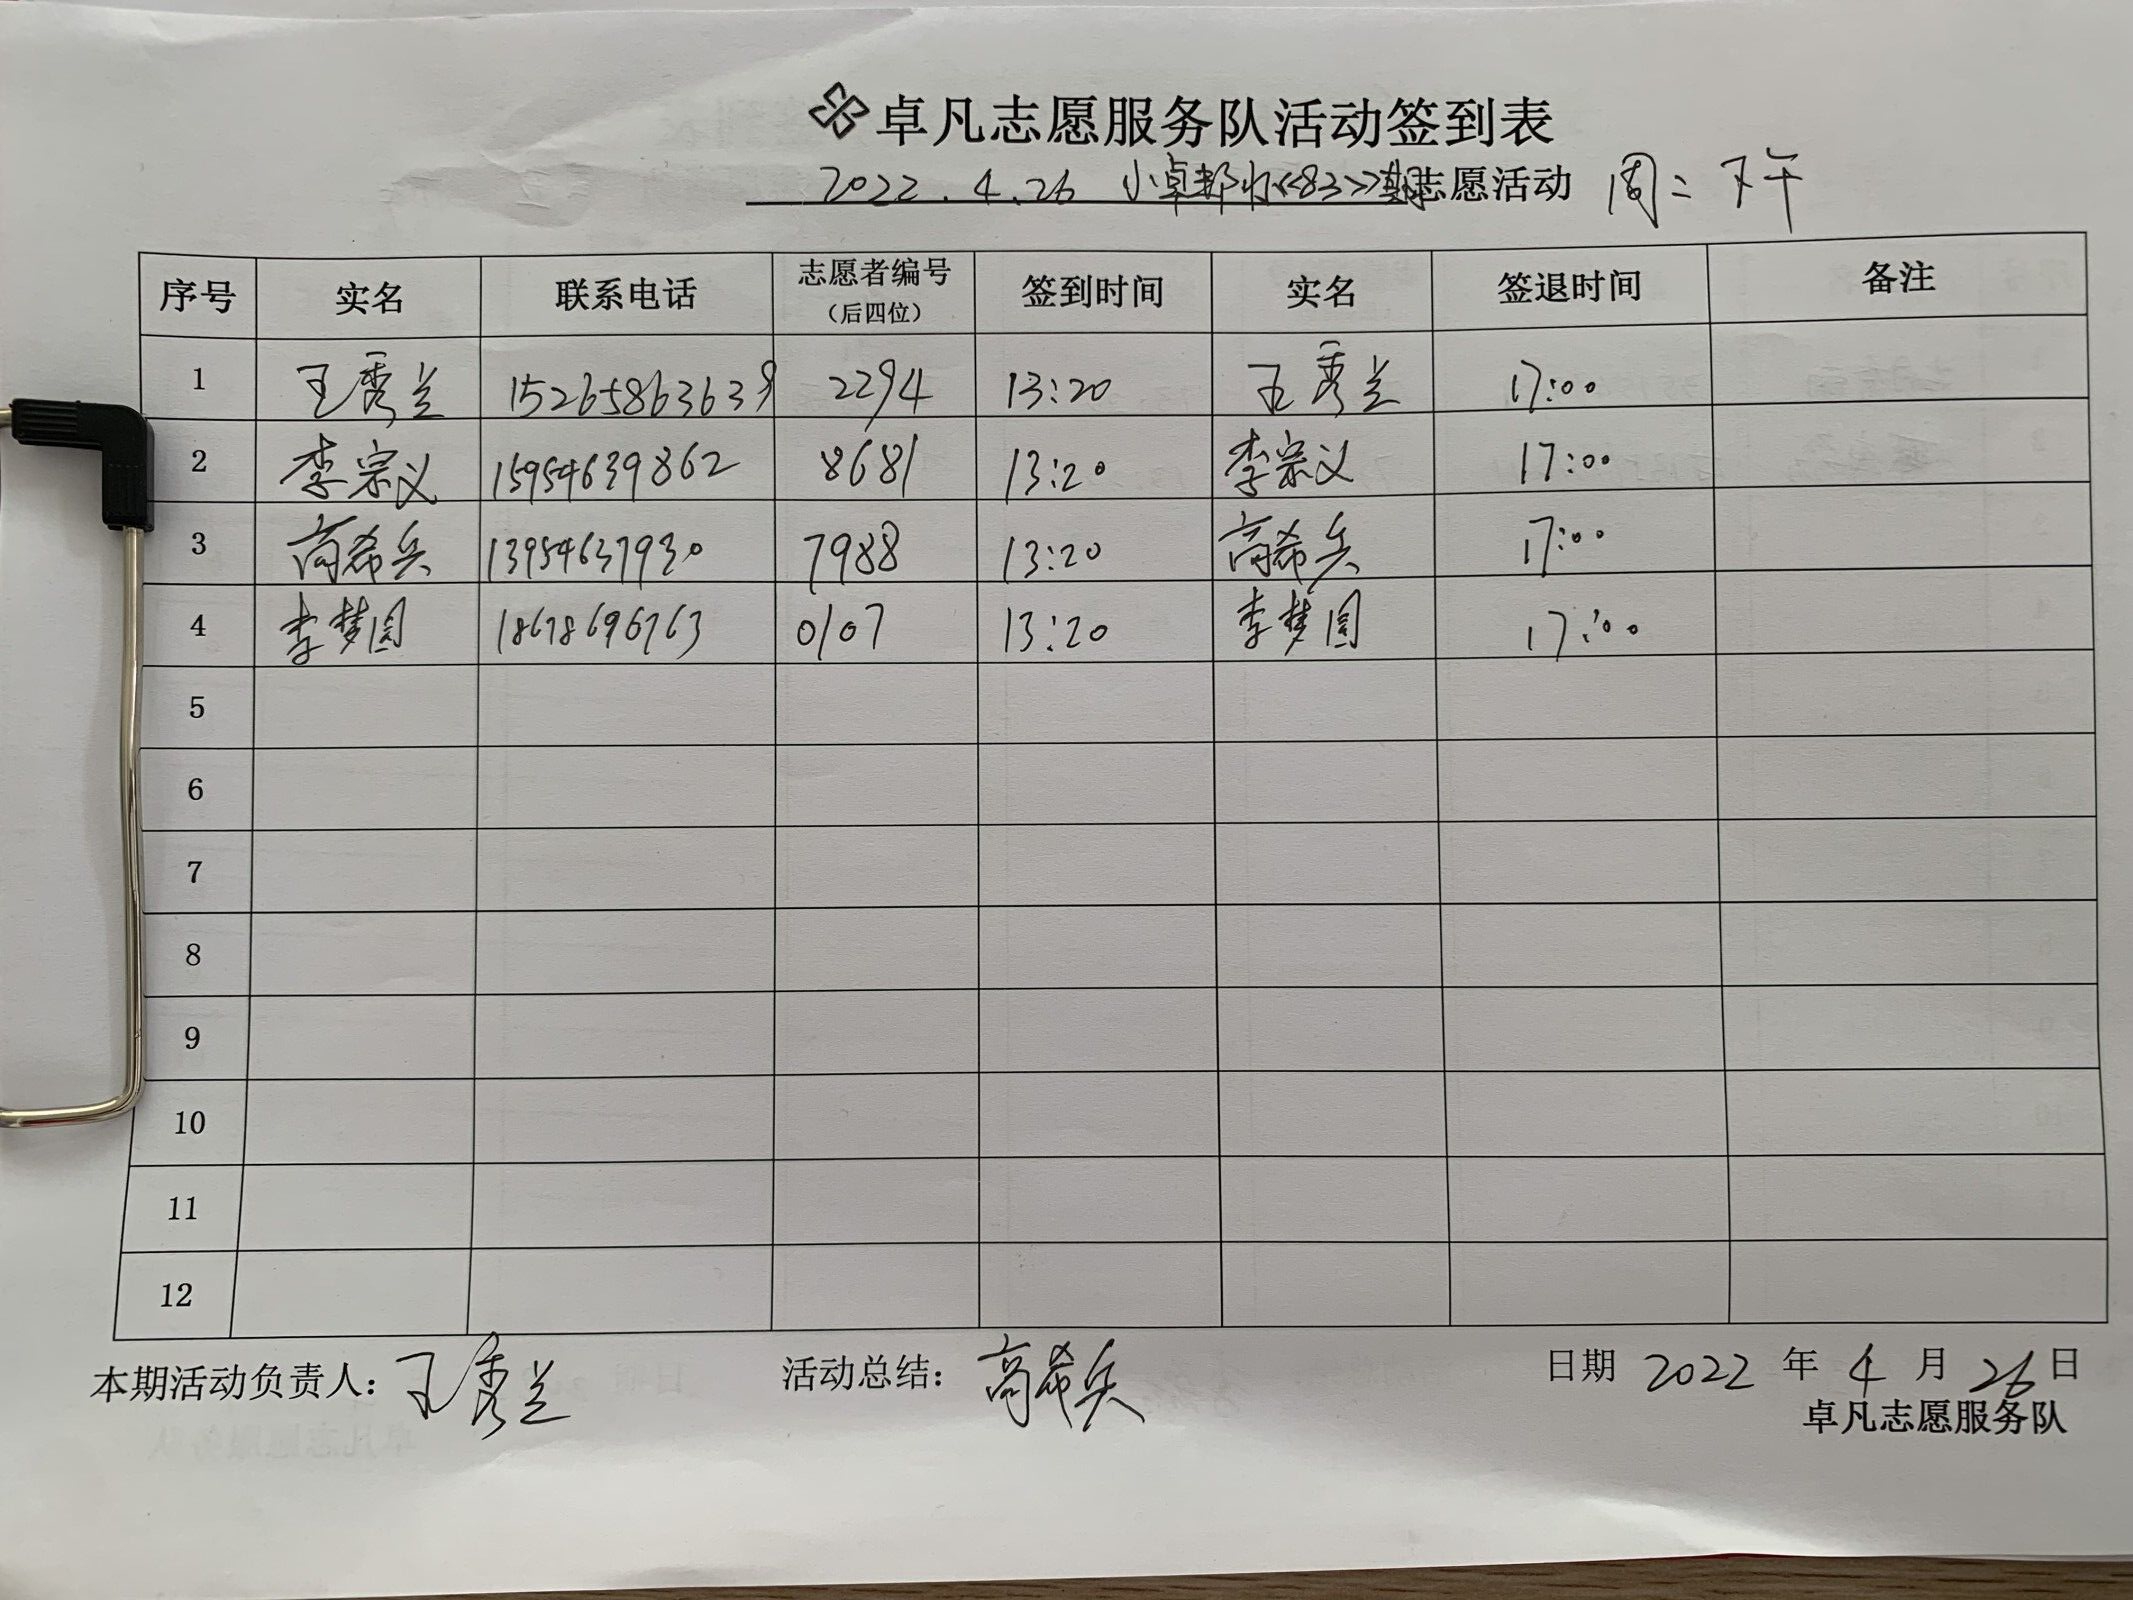 卓凡志愿服务队活动签到表
2022.4.26 小卓邦忙《83》期志愿活动 周二下午
序号 实名 联系电话 志愿者编号（后四位） 签到时间 实名 签退时间 备注
1 王秀兰 15265863639 2294 13:20 王秀兰 17:00
2 李宗义 15954639862 8681 13:20 李宗义 17:00
3 高希兵 13954637930 7988 13:20 高希兵 17:00
4 李梦圆 18678696763 0107 13:20 李梦圆 17:00
5
6
7
8
9
10
11
12
本期活动负责人：王秀兰 活动总结：高希兵 日期 2022 年 4 月 26 日
卓凡志愿服务队